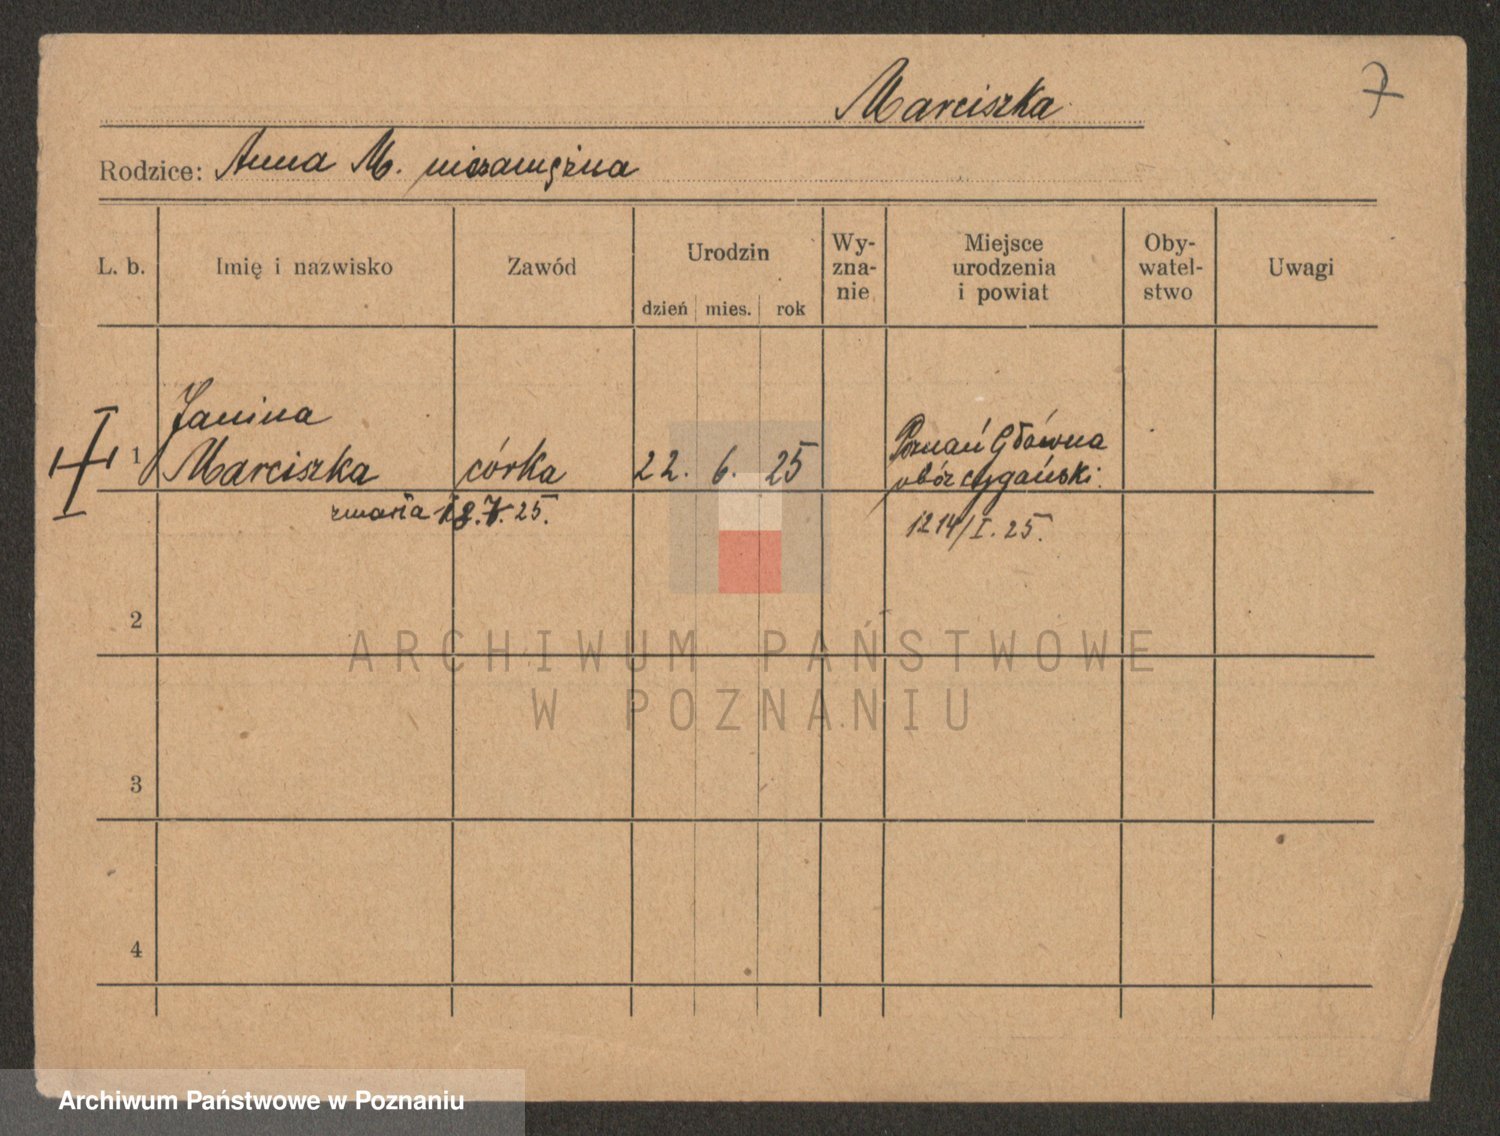 Marciszka
7
Rodzice: Anna M. niezamężna
L. b. Imię i nazwisko Zawód Urodzin Wy- zna- nie Miejsce urodzenia i powiat Oby- watel- stwo Uwagi
dzień mies. rok
Janina
1 Marciszka córka 22. 6. 25 Poznań Główna
obóz cygański.
zmarła 18.7.25. 1214/I.25.
2
ARCHIWUM PAŃSTWOWE
W POZNANIU
3
4
Archiwum Państwowe w Poznaniu